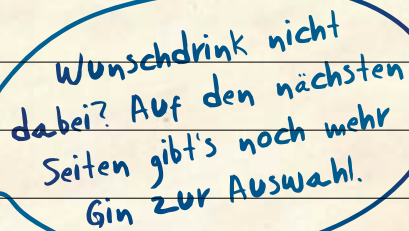 Wunschdrink nicht
dabei? Auf den nächsten
Seiten gibt's noch mehr
Gin zur Auswahl.